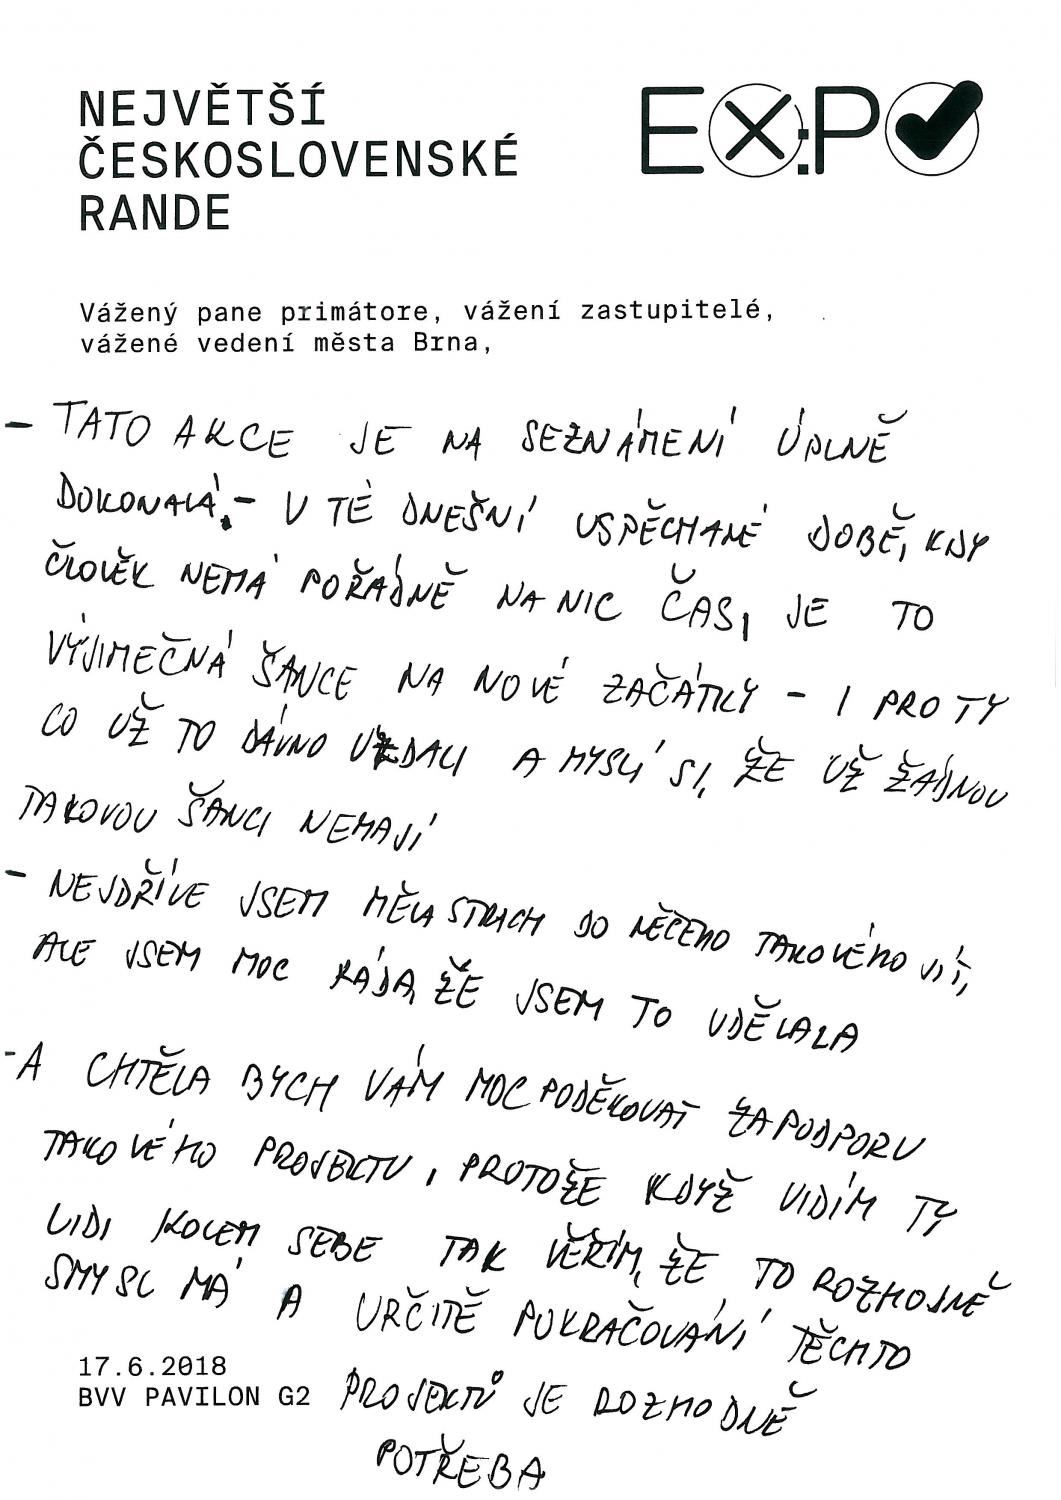 NEJVĚTŠÍ
ČESKOSLOVENSKÉ
RANDE
EX:PO
Vážený pane primátore, vážení zastupitelé,
vážené vedení města Brna,
- TATO AKCE JE NA SEZNÁMENÍ ÚPLNĚ
DOKONALÁ. - V TÉ DNEŠNÍ USPĚCHANÉ DOBĚ, KDY
ČLOVĚK NEMÁ POŘÁDNĚ NA NIC ČAS, JE TO
VÝJIMEČNÁ ŠANCE NA NOVÉ ZAČÁTKY - I PRO TY
CO UŽ TO DÁVNO VZDALI A MYSLÍ SI, ŽE UŽ ŽÁDNOU
TAKOVOU ŠANCI NEMAJÍ
- NEJDŘÍVE JSEM MĚLA STRACH DO NĚČEHO TAKOVÉHO JÍT,
ALE JSEM MOC RÁDA, ŽE JSEM TO UDĚLALA
- A CHTĚLA BYCH VÁM MOC PODĚKOVAT ZA PODPORU
TAKOVÉHO PROJEKTU, PROTOŽE KDYŽ VIDÍM TY
LIDI KOLEM SEBE TAK VĚŘÍM, ŽE TO ROZHODNĚ
SMYSL MÁ A URČITĚ POKRAČOVÁNÍ TĚCHTO
PROJEKTŮ JE ROZHODNĚ
POTŘEBA
17.6.2018
BVV PAVILON G2